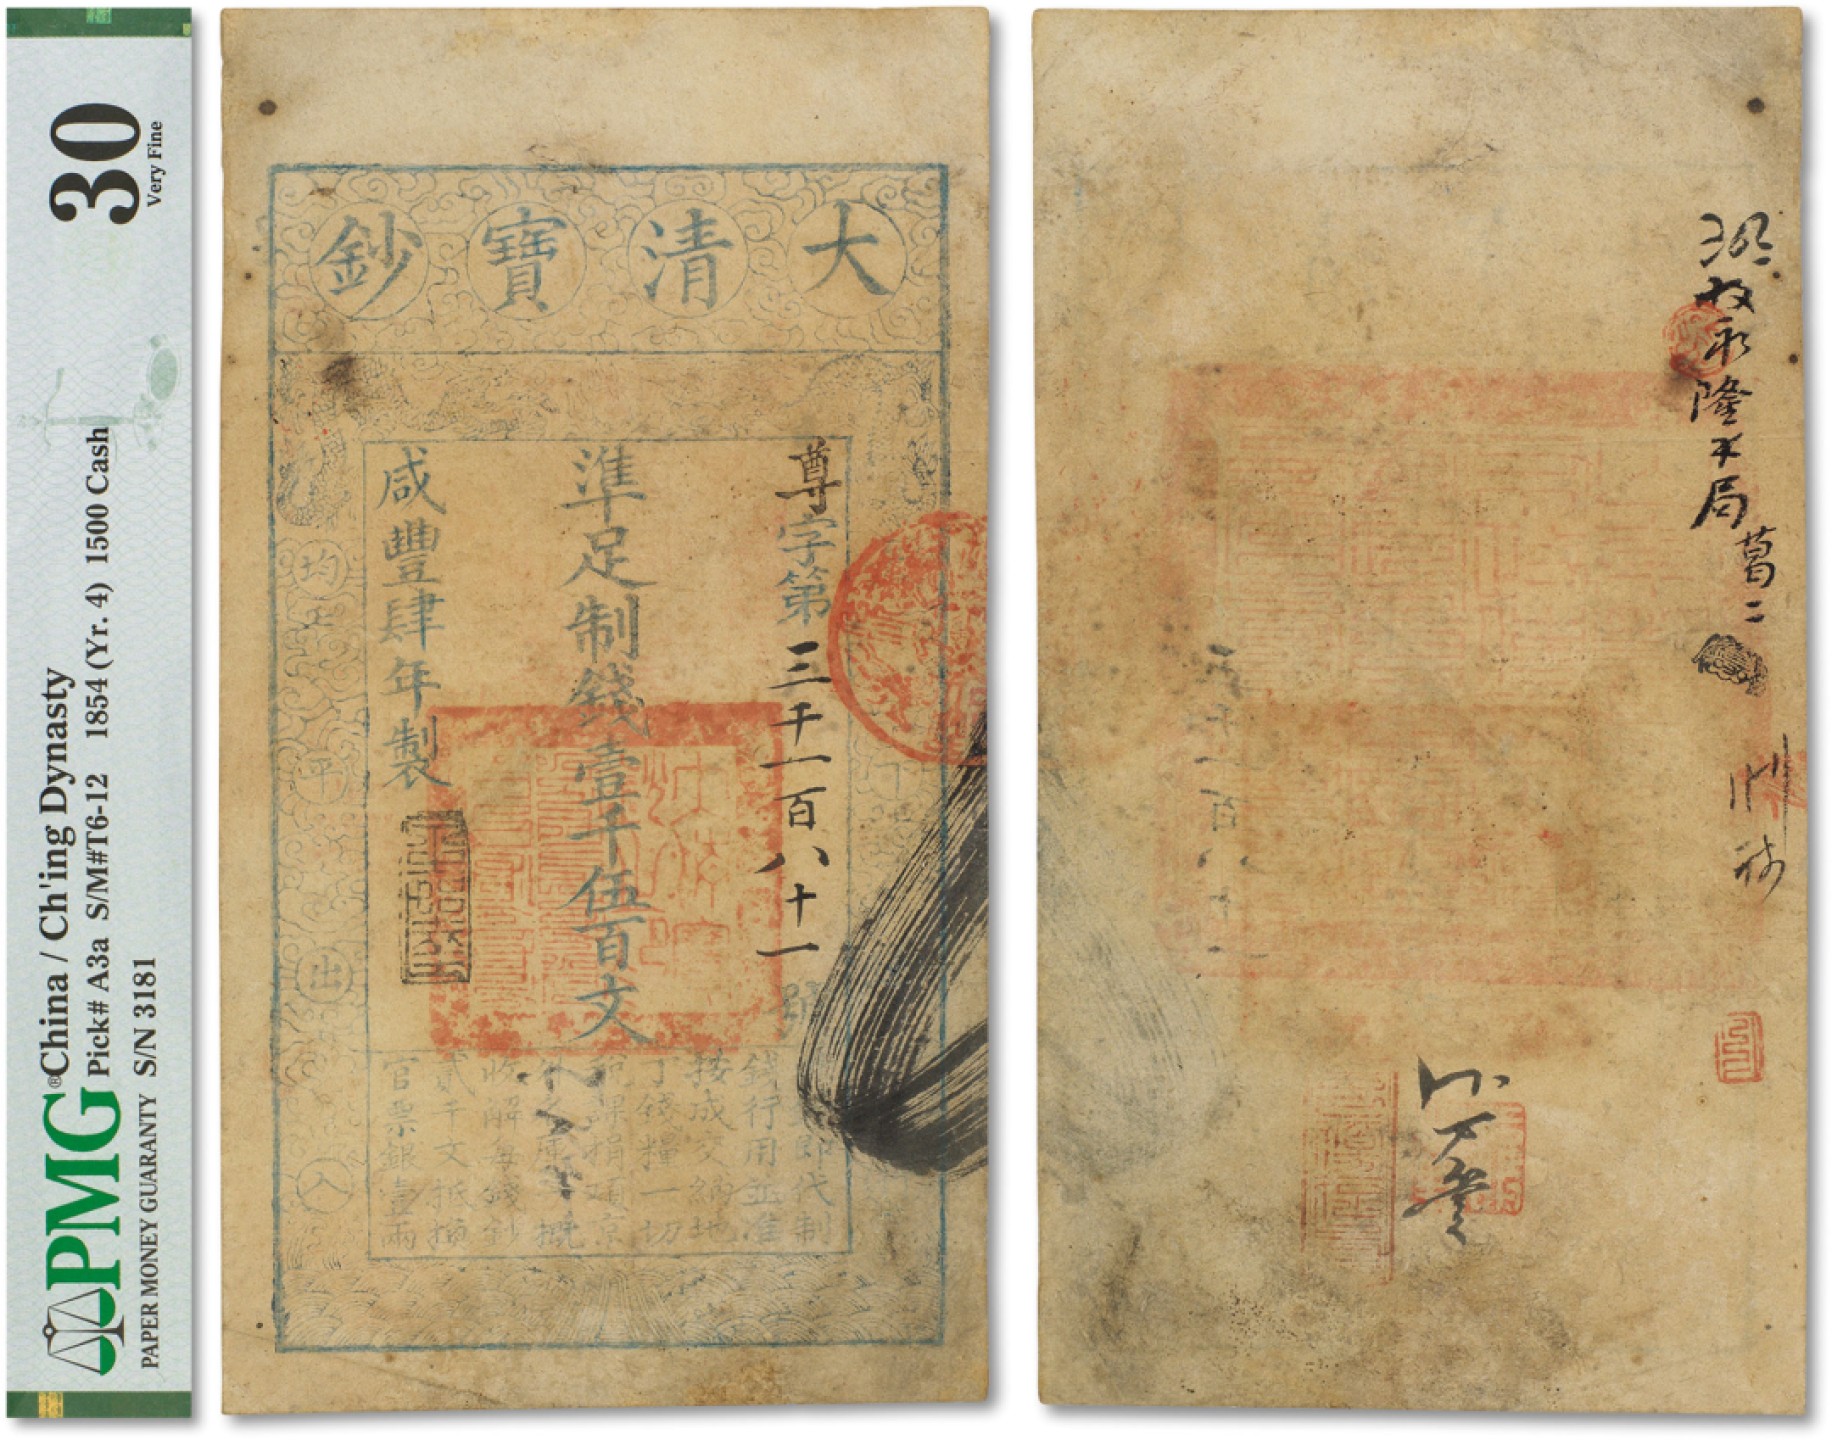 PMG®
PAPER MONEY GUARANTY
China / Ch'ing Dynasty
Pick# A3a S/M#T6-12 1854 (Yr. 4) 1500 Cash
S/N 3181
30
Very Fine
大清寶鈔
尊字第三千一百八十一號
準足制錢壹千伍百文
咸豐肆年製
均平出入
即代制
錢行用並准
按成交納地
丁錢糧一切
課捐項京
庫一概
收解每錢鈔
貳千文抵換
官票銀壹兩
收永隆
局
葛二